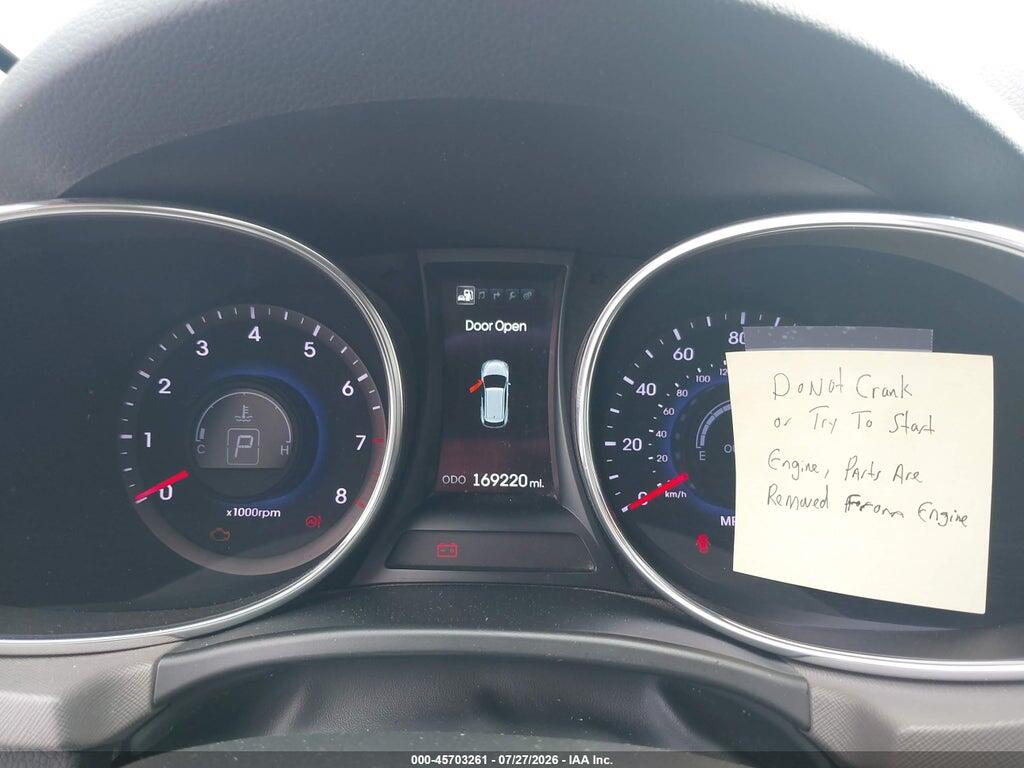 Door Open
ODO 169220 mi.
0 1 2 3 4 5 6 7 8
x1000rpm
C P H
20 40 60 80
20 40 60 80 100
km/h
E
Do Not Crank
or Try To Start
Engine, Parts Are
Removed From Engine
000-45703261 - 07/27/2026 - IAA Inc.